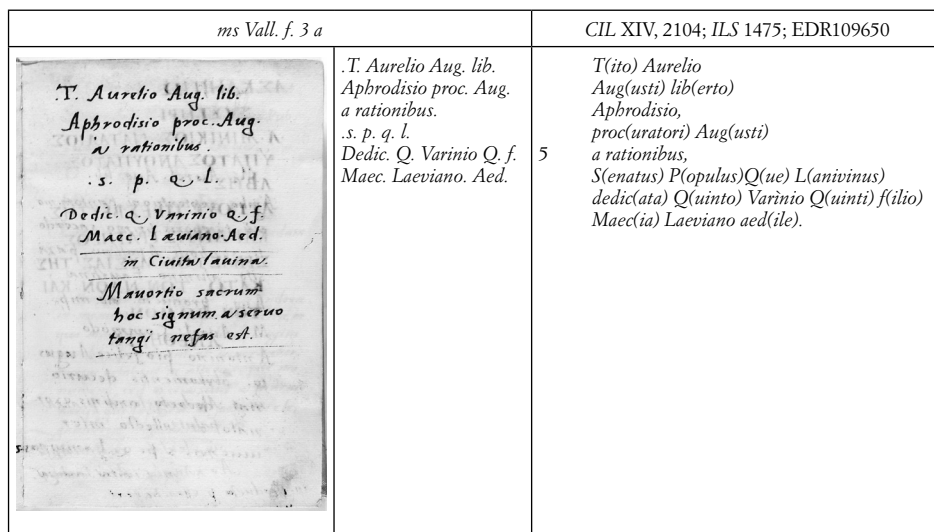 ms Vall. f. 3 a
CIL XIV, 2104; ILS 1475; EDR109650
.T. Aurelio Aug. lib.
Aphrodisio proc. Aug.
a rationibus.
.s. p. q. l.
Dedic. Q. Varinio Q. f.
Maec. Laeviano. Aed.
in Civita lavina.
Mavortio sacrum
hoc signum a servo
tangi nefas est.
.T. Aurelio Aug. lib.
Aphrodisio proc. Aug.
a rationibus.
.s. p. q. l.
Dedic. Q. Varinio Q. f.
Maec. Laeviano. Aed.
T(ito) Aurelio
Aug(usti) lib(erto)
Aphrodisio,
proc(uratori) Aug(usti)
5 a rationibus,
S(enatus) P(opulus)Q(ue) L(anivinus)
dedic(ata) Q(uinto) Varìnio Q(uinti) f(ilio)
Maec(ia) Laeviano aed(ile).